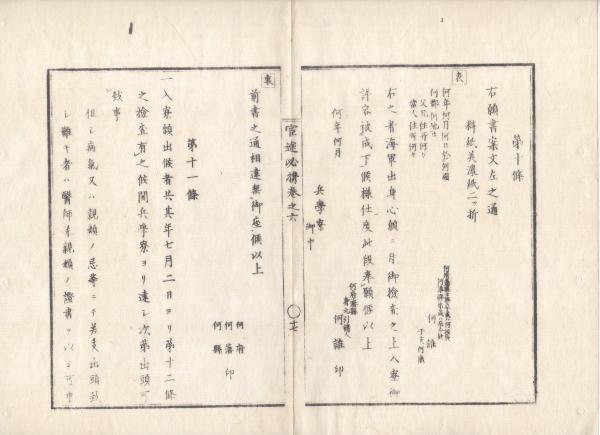 第十條
右願書案文左之通
料紙美濃紙二ッ折
表
何年何月何日於何國
何郡何地生
父兄住所何々
當人住所何々
何誰
于支何歳
右之者海軍出身心願ニ付御檢査之上入寮御
許容被成下候樣仕度此段奉願候以上
何府藩縣
身元引請人
何誰 印
何年何月
兵學寮
御中
官途必攜卷之六
十七
裏
前書之通相違無御座候以上
何府
何藩 印
何縣
第十一條
一入寮願出候者共其年七月二日ヨリ第十二條
之檢査有之候間兵學寮ヨリ達之次第出頭可
致事
但シ病氣又ハ親類ノ忌等ニテ若美出頭致
シ難キ者ハ醫師幷親類ノ證書ヲ以テ可申